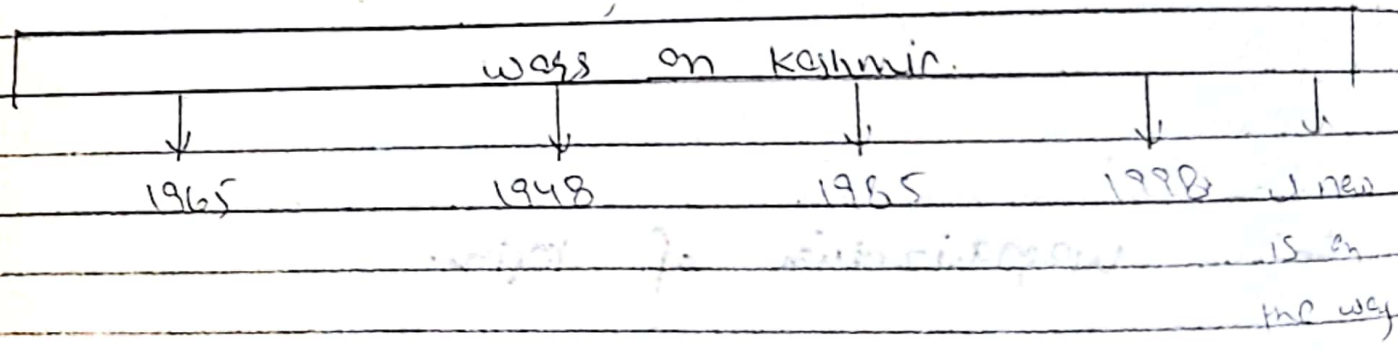 wars on Kashmir.
1965 1948 1965 1998 1 new
is on
the way